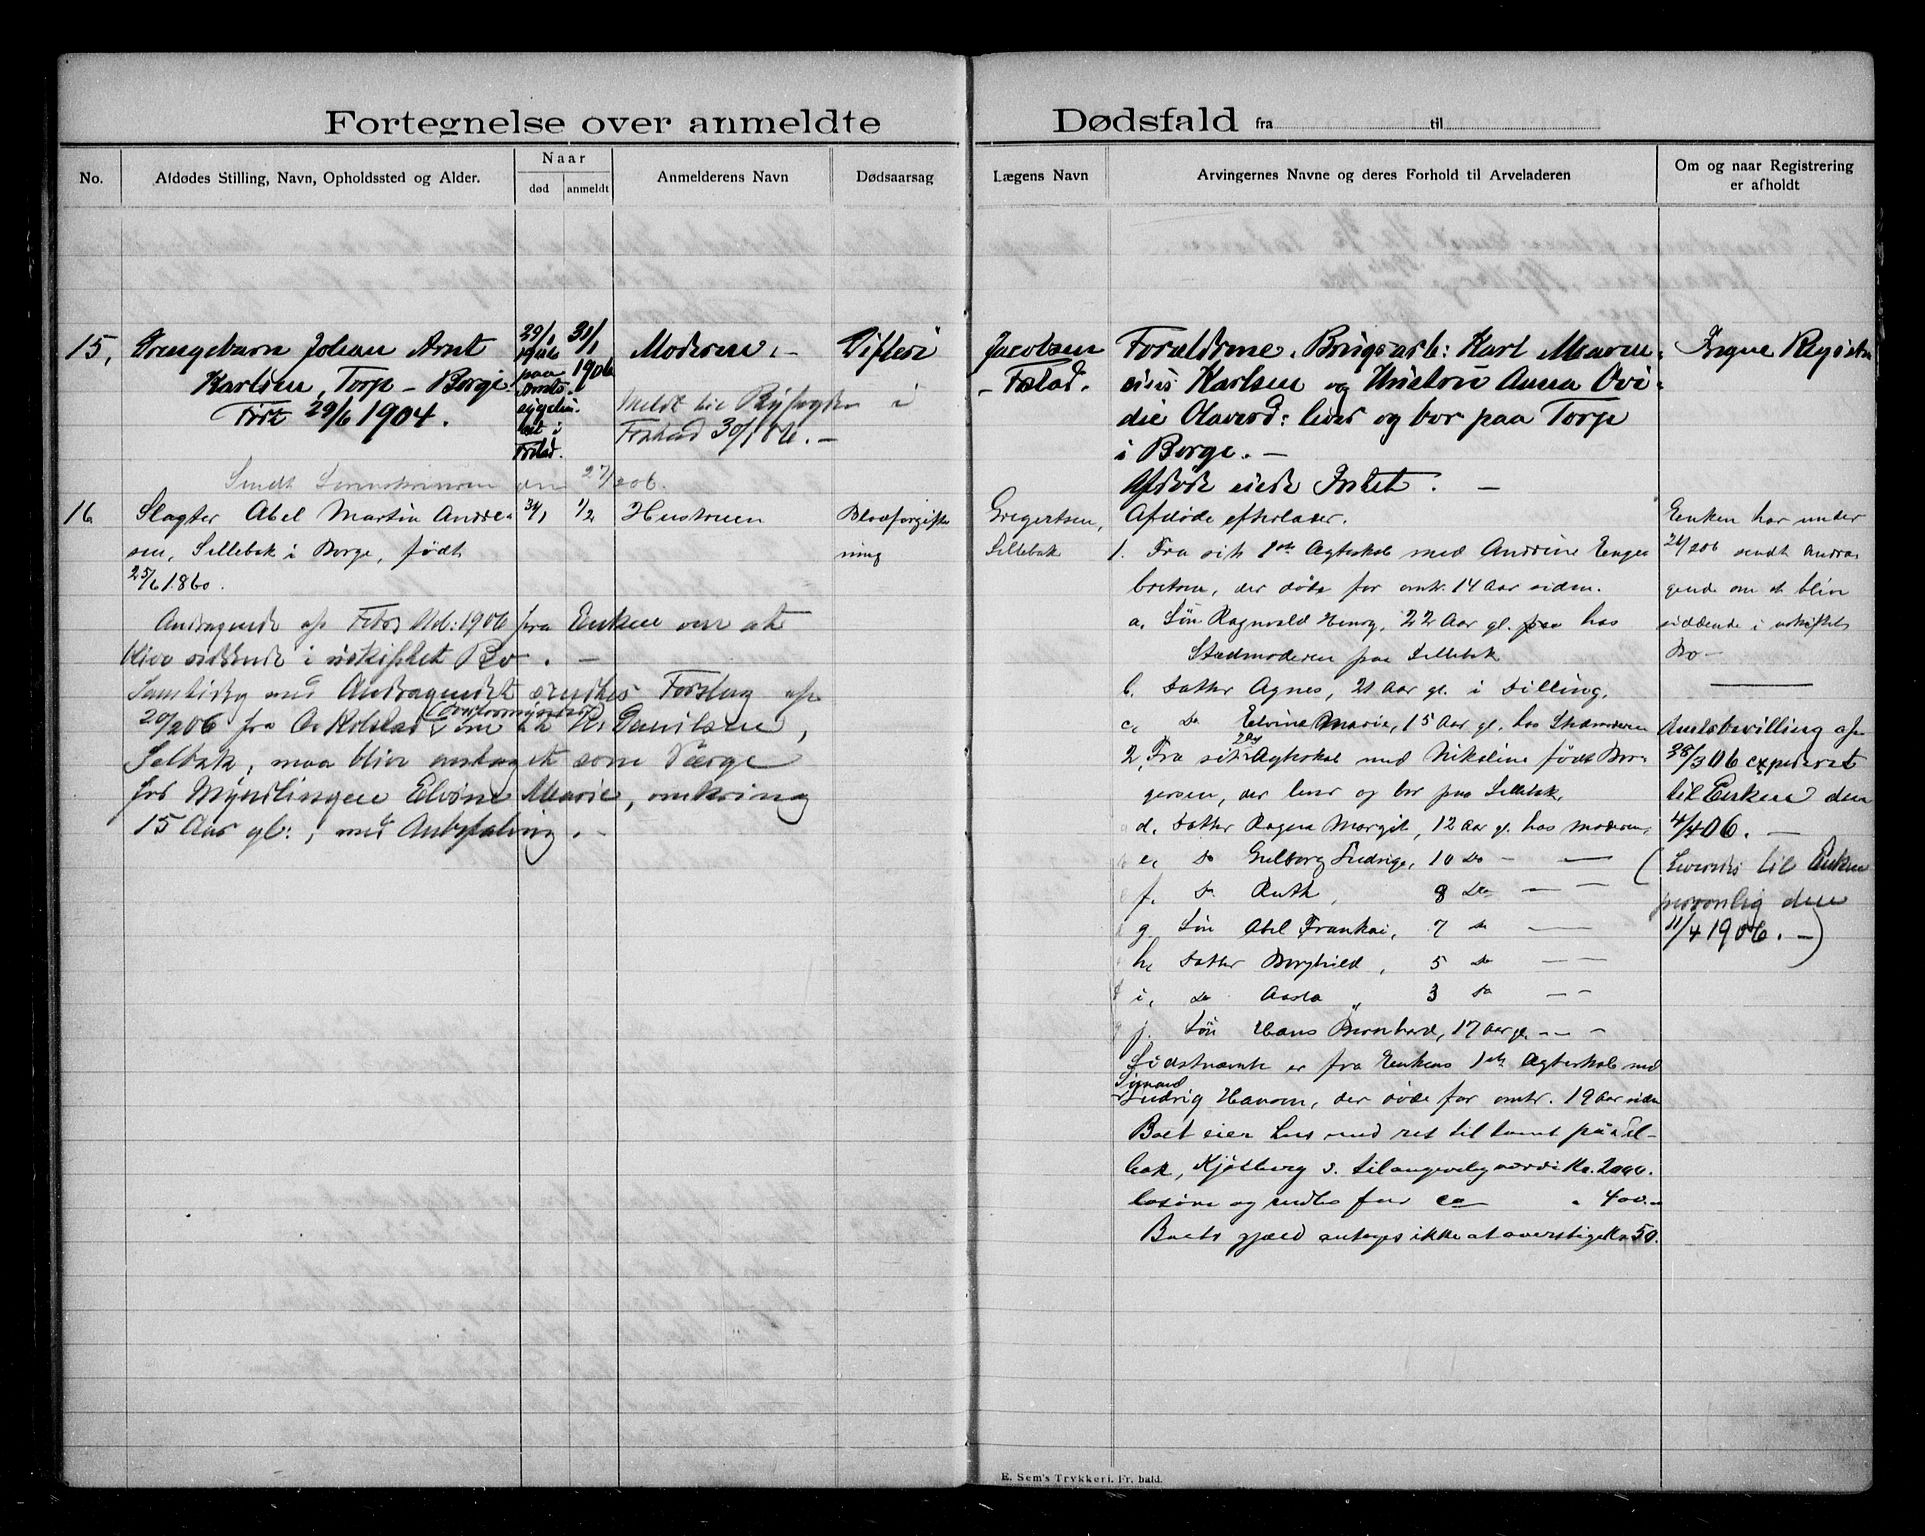 Fortegnelse over anmeldte
Dødsfald fra til
No.
Afdødes Stilling, Navn, Opholdssted og Alder.
Naar
død
anmeldt
Anmelderens Navn
Dødsaarsag
Lægens Navn
Arvingernes Navne og deres Forhold til Arveladeren
Om og naar Registrering
er afholdt
15,
Drengebarn Johan Arnt
Karlsen, Torp - Borge
Født 29/6 1904.
29/1
1906
paa
Amts-
sygehu-
set i
Fr.stad.
31/1
1906
Moderen. -
Meldt til Byfogden i
Fr.stad 30/1 06. -
Difteri
Jacobsen
- F.stad.
Forældrene, Brugsarb: Karl Maren-
sius Karlsen og Hustru Anna Ovi-
die Olavesd: lever og bor paa Torp
i Borge. -
Afdøde eiede Intet. -
Ingen Registr
Sendt den 27/2 06.
16
Slagter Abel Martin Andre-
sen, Sellebak i Borge, født
25/6 1860.
30/1
1/2
Hustruen
Blodforgift-
ning
Gregertsen,
Sellebak
Afdøde efterlader.
1. Fra sit 1ste Ægteskab med Andrine Enge-
bretsen, der døde for omtr. 14 Aar siden.
a. Søn Ragnvald Henry, 22 Aar gl. hos
Stedmoderen paa Sellebak
b. Datter Agnes, 21 Aar gl. i Dilling.
c, Do Elvine Marie, 15 Aar gl. hos Stedmoderen
2. Fra sit 2det Ægteskab med Nikoline født Bør-
gersen, der lever og bor paa Sellebak,
d. Datter Ragna Margit, 12 Aar gl. hos Moderen,
e, Do Gulborg Ludvige, 10 Do - -
f. Do Ruth, 8 Do - -
g. Søn Abel Frankai, 7 Do -
h, Datter Borghild, 5 Do - -
i, Do Aasta „ 3 Do - -
j. Søn Hans Bernhard, 17 Aar gl. - -
Sidstnævnte er fra Enkens 1ste Ægteskab med
Sigvard
Ludvig Hansen, der døde for omtr. 19 Aar siden
Boet eier hus med ret til tomt paa Sel-
bak, Kjølberg s. til angivelig værdi Kr. 2000.
løsøre og andet for ca „ 400.-
Boets gjæld antages ikke at overstige Kr 50.
Enken har under
24/2 06 sendt Andra-
gende om at blive
siddende i uskiftet
Bo -
Amtsbevilling af
28/3 06 expederet
til Enken den
4/4 06. -
(Leveredes til Enken
personlig den
11/4 1906. -)
Andragende af Febr. Md: 1906 fra Enken om at
blive siddende i uskiftet Bo. -
Samtidig med Andragendet sendtes Forslag af
20/2 06 fra O. Kolstad (Overformynder) om at Kr. Danielsen,
Selbak, maa blive antaget som Værge
for Myndlingen Elvine Marie, omkring
15 Aar gl:, med Anbefaling. -
E. Sem's Trykkeri. Fr. hald.